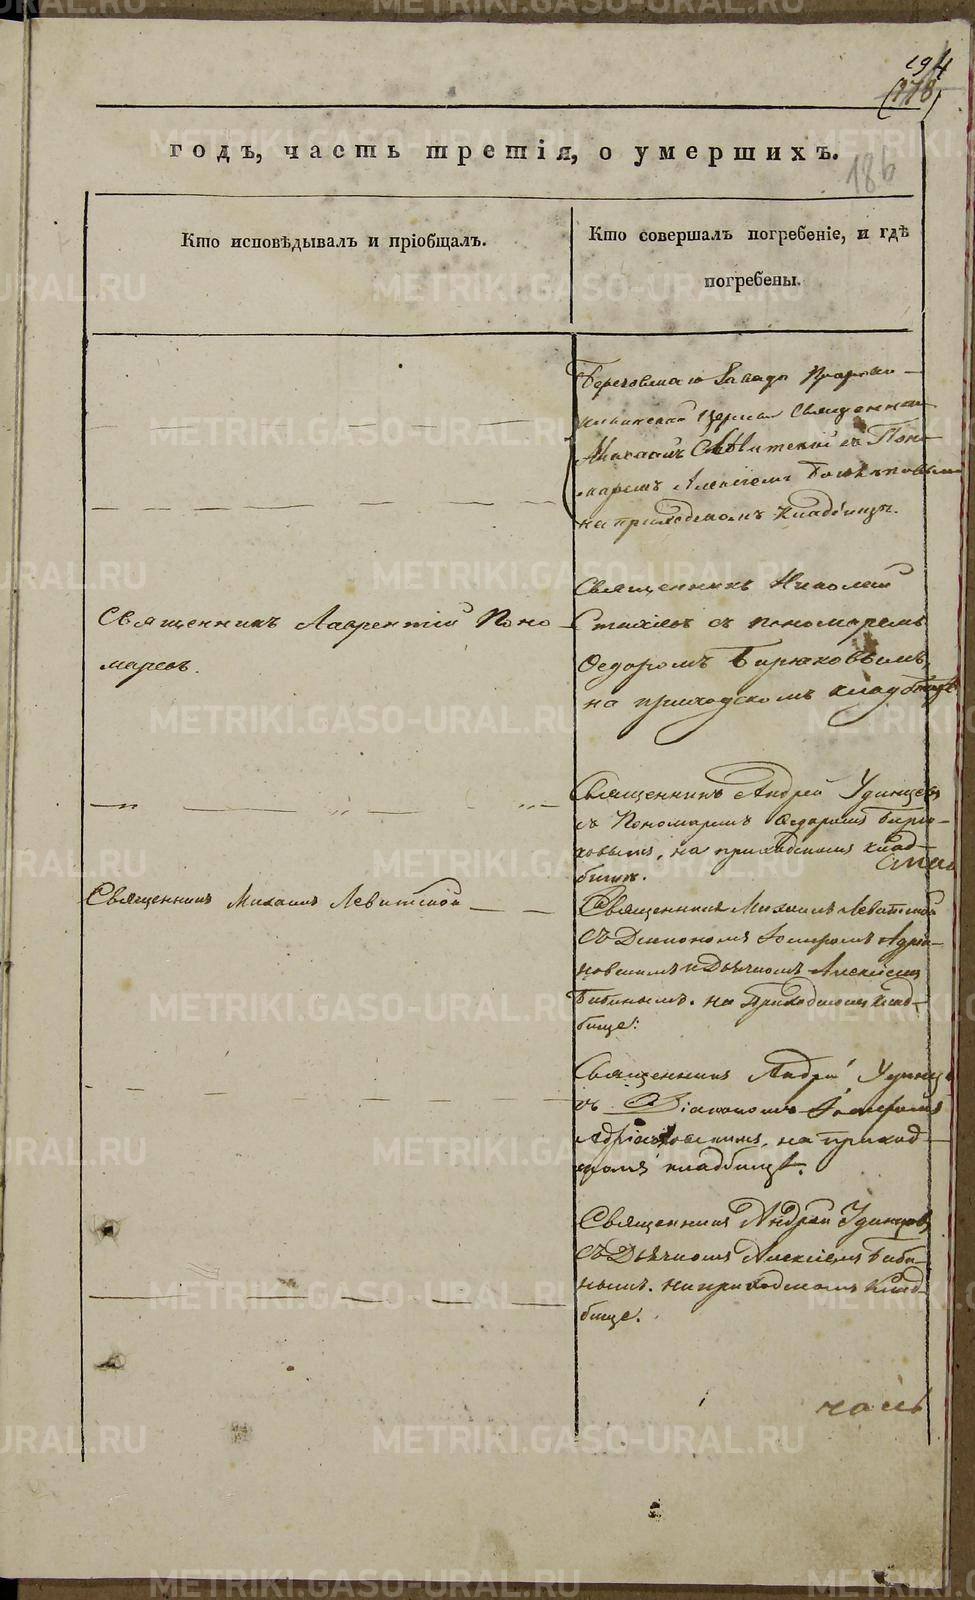 194
(178)
годъ, часть третія, о умершихъ.
186
Кто исповѣдывалъ и пріобщалъ.
Кто совершалъ погребеніе, и гдѣ
погребены.
Священникъ
Михаилъ Левитский съ Поно-
маремъ Алексіемъ
на приходскомъ кладбищѣ.
Священникъ Лаврентій Поно-
маревъ.
Священникъ Николай
съ пономаремъ
Ѳедоромъ Бирюковымъ,
на приходскомъ кладбищѣ
Священникъ Андрей Удинцевъ
съ Пономаремъ Ѳедоромъ Бирю-
ковымъ, на приходскомъ клад-
бищѣ.
Священникъ Михаилъ Левитской
Священникъ Михаилъ Левитской
съ Діакономъ Іосифомъ Адріа-
новскимъ и Дьячкомъ Алексіемъ
Бабинымъ. на Приходскомъ клад-
бище.
Священникъ Андрей Удинцевъ
съ Діакономъ Іосифомъ
Адріановскимъ, на приход-
скомъ кладбищѣ.
Священникъ Андрей Удинцовъ
съ Дьячкомъ Алексіемъ Баби-
нымъ. на приходскомъ клад-
бище.
METRIKI.GASO-URAL.RU